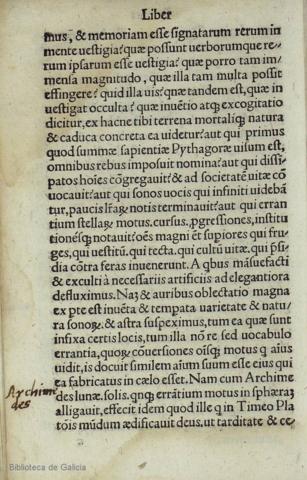 Liber
mus, & memoriam esse signatarum rerum in
mente uestigia? quæ possunt uerborumque re-
rum ipsarum esse uestigia? quæ porro tam im-
mensa magnitudo, quæ illa tam multa possit
effingere? quid illa uis? quæ tandem est, quæ in
uestigat occulta? quæ inuẽtio atq; excogitatio
dicitur, ex hacne tibi terrena mortaliq; natura
& caduca concreta ea uidetur? aut qui primus
quod summæ sapientiæ Pythagoræ uisum est,
omnibus rebus imposuit nomina? aut qui dissi-
patos hoĩes cõgregauit? & ad societatẽ uitæ cõ
uocauit? aut qui sonos uocis qui infiniti uidebã
tur, paucis lr̃aꝝ notis terminauit? aut qui erran
tium stellaꝝ motus. cursus. ꝓgressiones, institu
tionésq; notauit? oẽs magni et supiores qui fru-
ges, qui uestitũ. qui tecta. qui cultũ uitæ. qui p̃si-
dia cõtra feras inuenerunt. A qbus mãsuefacti
& exculti à necessariis artificiis ad elegantiora
defluximus. Naʒ & auribus oblectatio magna
ex pte est inuẽta & tempata uarietate & natu-
ra sonoꝝ. & astra suspeximus, tum ea quæ sunt
infixa certis locis, tum illa nõ re sed uocabulo
errantia, quoꝝ cõuersiones oĩsq; motus q aĩus
uidit, is docuit similem aĩum suum esse eius qui
ea fabricatus in cælo esset. Nam cum Archime
des lunæ. solis. qnq; errãtium motus in sphæraʒ
alligauit, effecit idem quod ille q in Timeo Pla
tois mũdum ædificauit deus. ut tarditate & ce,
Archime
des
Biblioteca de Galicia